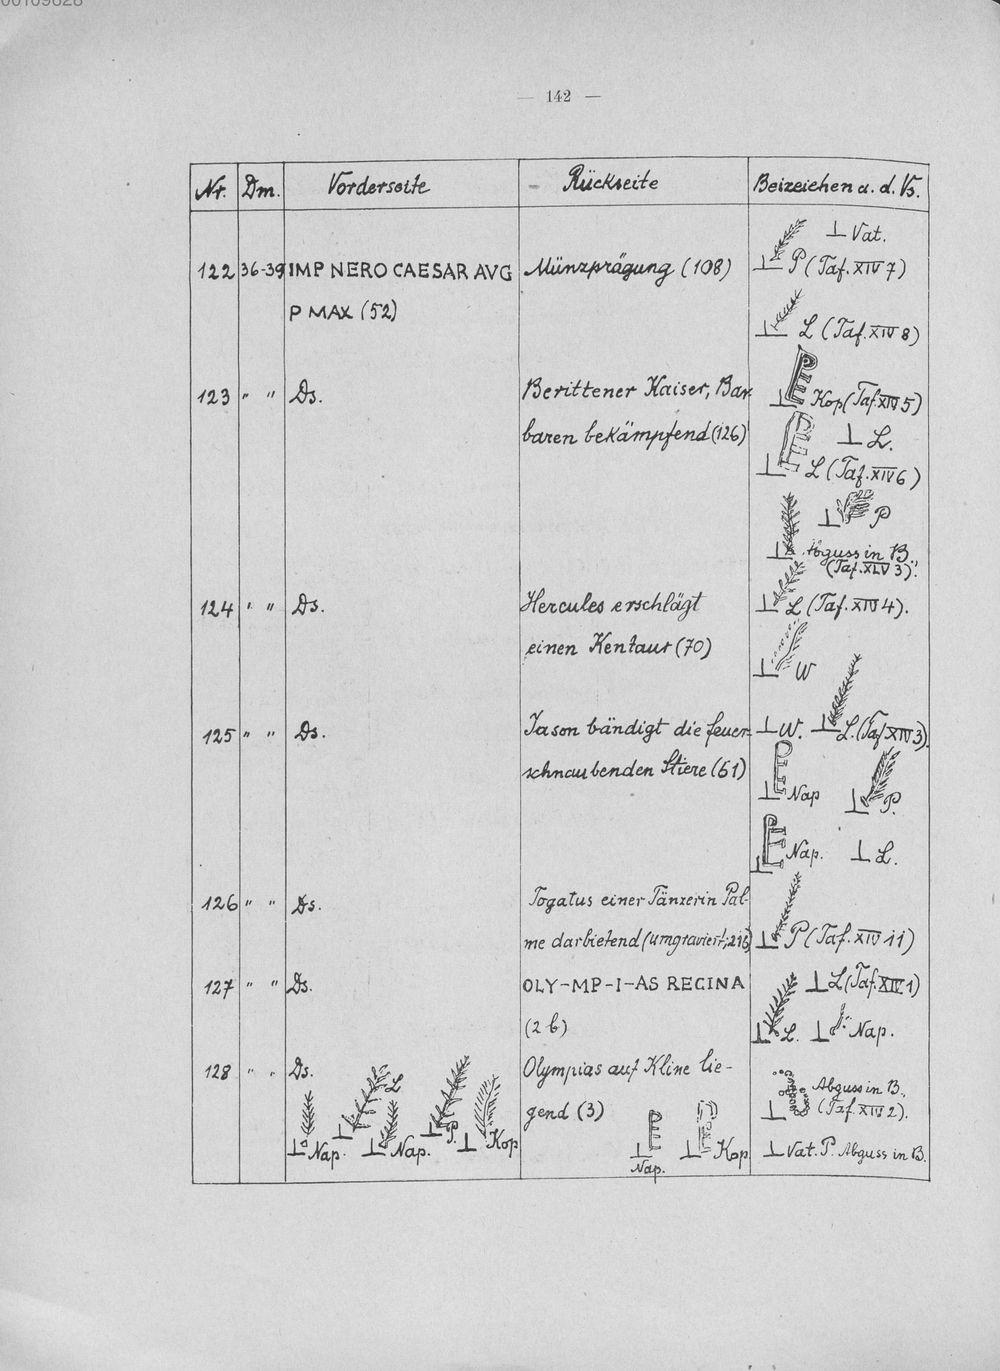 00109828
— 142 —
Nr. Dm. Vorderseite Rückseite Beizeichen a. d. Vs.
⊥ Vat.
122 36-39 IMP NERO CAESAR AVG Münzprägung (108) ⊥ P (Taf. XIV 7)
P MAX (52)
⊥ L (Taf. XIV 8)
123 " " Ds. Berittener Kaiser, Bar- ⊥ Kop (Taf. XIV 5)
baren bekämpfend (126) ⊥ L.
⊥ L (Taf. XIV 6)
⊥ P
⊥ Abguss in B.
(Taf. XLV 3).
124 " " Ds. Hercules erschlägt ⊥ L (Taf. XIV 4).
einen Kentaur (70)
⊥ W
125 " " Ds. Jason bändigt die feuer- ⊥ W. ⊥ L. (Taf XIV 3).
schnaubenden Stiere (61)
⊥ Nap ⊥ P.
⊥ Nap. ⊥ L.
126 " " Ds. Togatus einer Tänzerin Pal-
me darbietend (umgraviert; 216) ⊥ P (Taf. XIV 11)
127 " " Ds. OLY-MP-I-AS REGINA ⊥ L (Taf. XIV 1)
(2 b) ⊥ L. ⊥ Nap.
128 " " Ds. Olympias auf Kline lie-
L Abguss in B.,
gend (3) ⊥ (Taf. XIV 2).
⊥ Nap. ⊥ ⊥ Nap. ⊥ P. ⊥ Kop ⊥ Nap. ⊥ Kop. ⊥ Vat. P. Abguss in B.